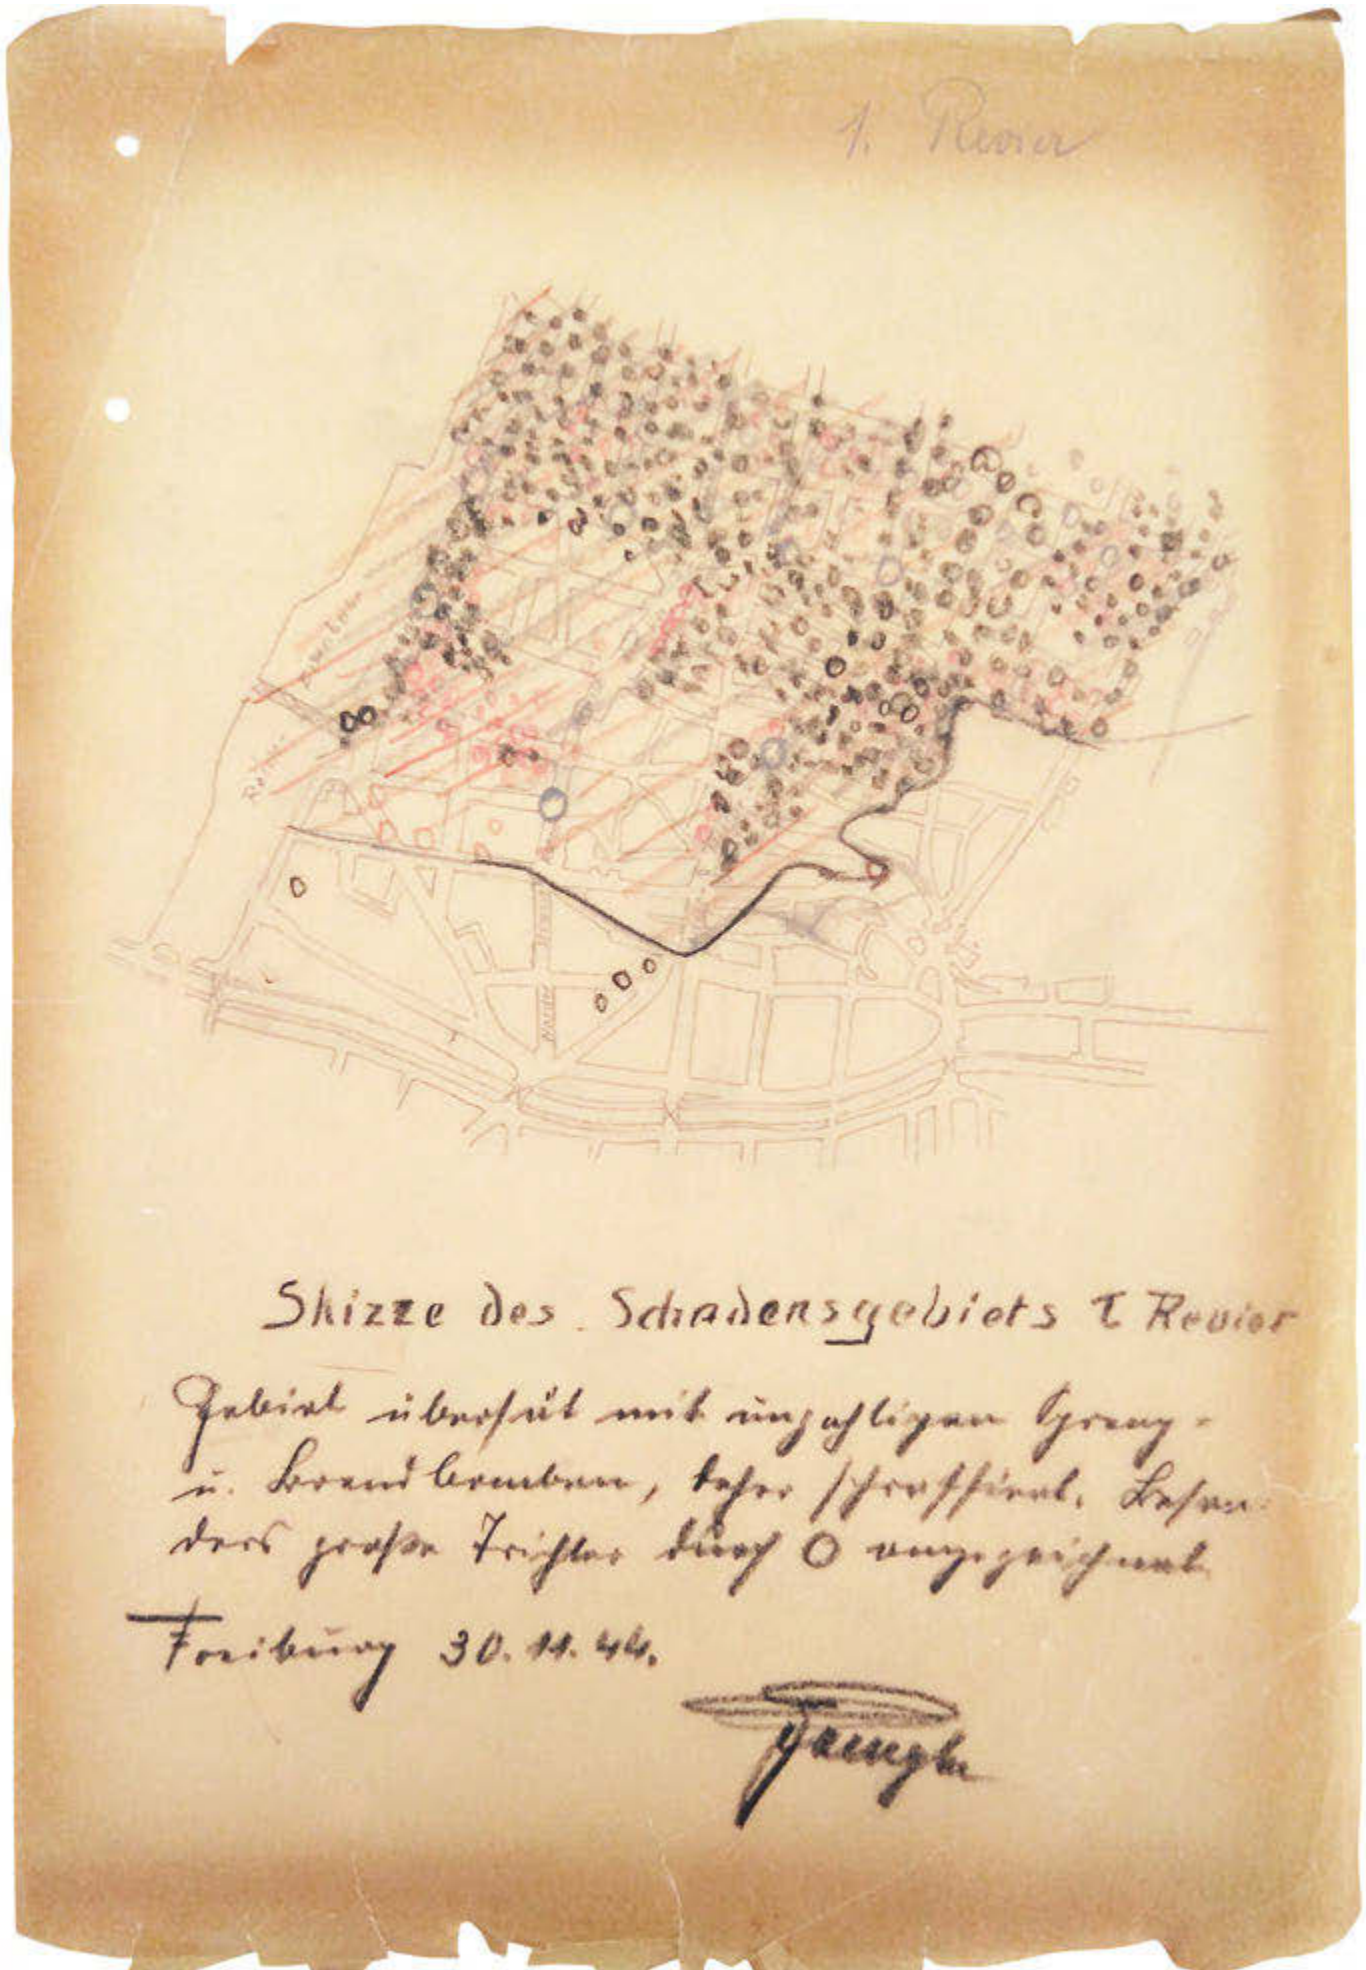 1. Revier
Skizze des Schadensgebiets I Revier
Gebiet übersät mit unzähligen Spreng-
u. Brandbomben, daher schraffiert. Beson-
ders große Trichter durch O angezeichnet
Freiburg 30.11.44.